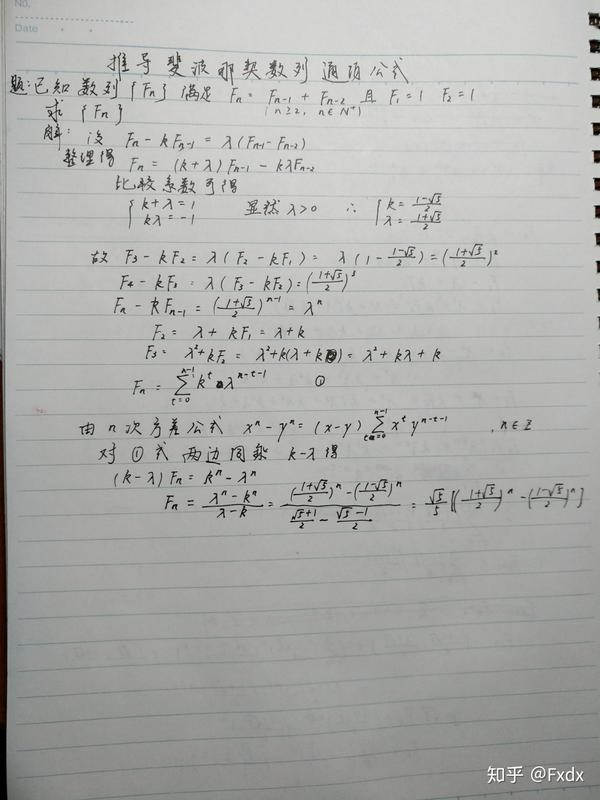 No.
Date
推导斐波那契数列通项公式
题:已知数列{Fn} 满足 Fn = Fn-1 + Fn-2 且 F1=1 F2=1
求 {Fn} (n≥2, n∈N+)
解: 设 Fn - kFn-1 = λ(Fn-1 - Fn-2)
整理得 Fn = (k+λ)Fn-1 - kλFn-2
比较系数可得
{k+λ=1 kλ=-1 显然 λ>0 ∴ {k=(1-√5)/2 λ=(1+√5)/2
故 F3 - kF2 = λ(F2 - kF1) = λ(1 - (1-√5)/2) = ((1+√5)/2)^2
F4 - kF3 = λ(F3 - kF2) = ((1+√5)/2)^3
Fn - kFn-1 = ((1+√5)/2)^(n-1) = λ^n
F2 = λ + kF1 = λ+k
F3 = λ²+kF2 = λ²+k(λ+k) = λ²+kλ+k
Fn = ∑_{t=0}^{n-1} k^t λ^(n-t-1) ①
由n次方差公式 x^n - y^n = (x-y) ∑_{t=0}^{n-1} x^t y^(n-t-1) , n∈Z
对①式两边同乘 k-λ得
(k-λ)Fn = k^n - λ^n
Fn = (λ^n - k^n)/(λ-k) = (((1+√5)/2)^n - ((1-√5)/2)^n)/((√5+1)/2 - (√5-1)/2) = √5/5 [((1+√5)/2)^n - ((1-√5)/2)^n]
知乎 @Fxdx